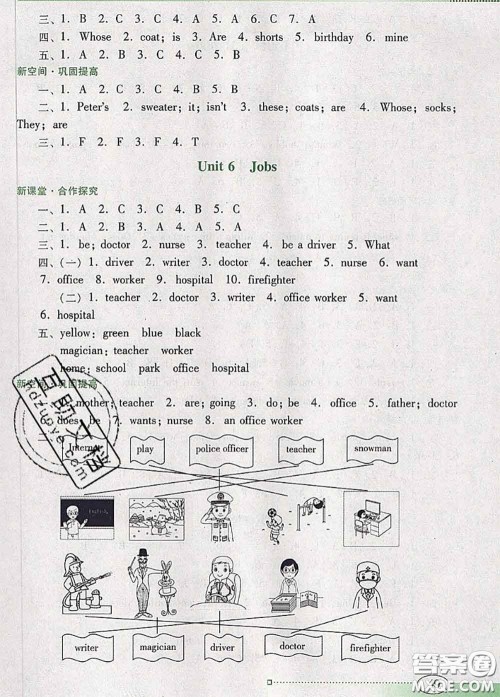 三、1. B 2. C 3. C 4. A 5. A 6. C 7. A
四、1. Whose 2. coat; is 3. Are 4. shorts 5. birthday 6. mine
五、1. A 2. B 3. C 4. C 5. B
新空间·巩固提高
一、1. A 2. C 3. C 4. A 5. B
二、1. Peter's 2. sweater; it; isn't 3. these; coats; are 4. Whose; socks;
They; are
三、1. F 2. F 3. F 4. T
Unit 6 Jobs
新课堂·合作探究
一、1. A 2. C 3. C 4. B 5. C
二、1. A 2. A 3. A 4. B 5. A
三、1. be; doctor 2. nurse 3. teacher 4. be a driver 5. What
四、(一) 1. driver 2. writer 3. doctor 4. teacher 5. nurse 6. want
7. office 8. worker 9. hospital 10. firefighter
(二) 1. teacher 2. doctor 3. writer 4. office worker 5. want
6. hospital
五、yellow; green blue black
magician; teacher worker
home; school park office hospital
新空间·巩固提高
mother; teacher 2. are; going 3. do; be 4. office 5. father; doctor
does; be 7. wants; nurse 8. an office worker
Internet play police officer teacher snowman
writer magician driver doctor firefighter
答案圈
MXQE.COM